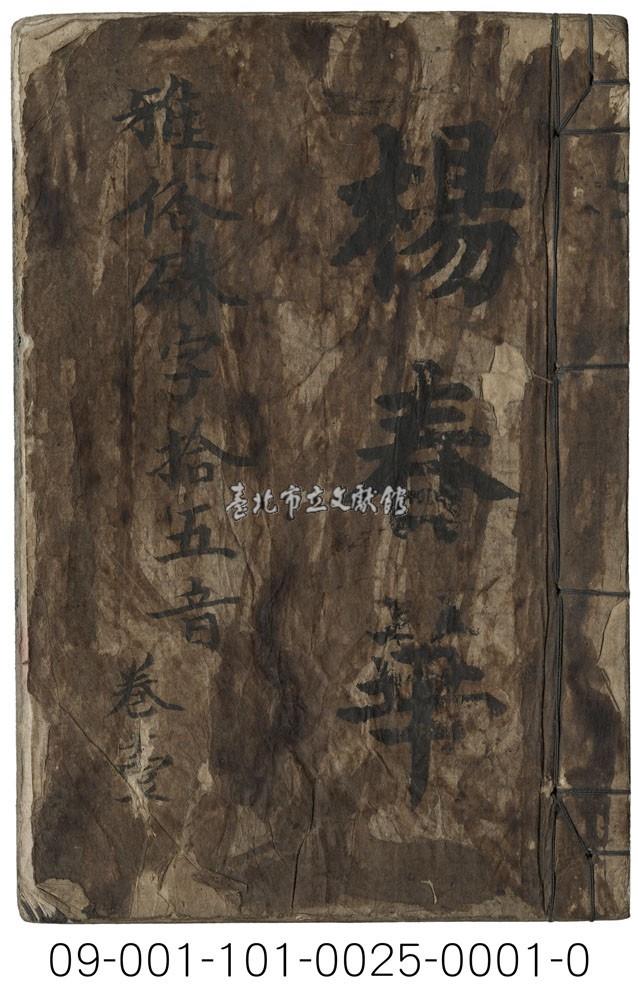 楊春華
雅俗硃字拾五音 卷壹
臺北市立文獻館
09-001-101-0025-0001-0